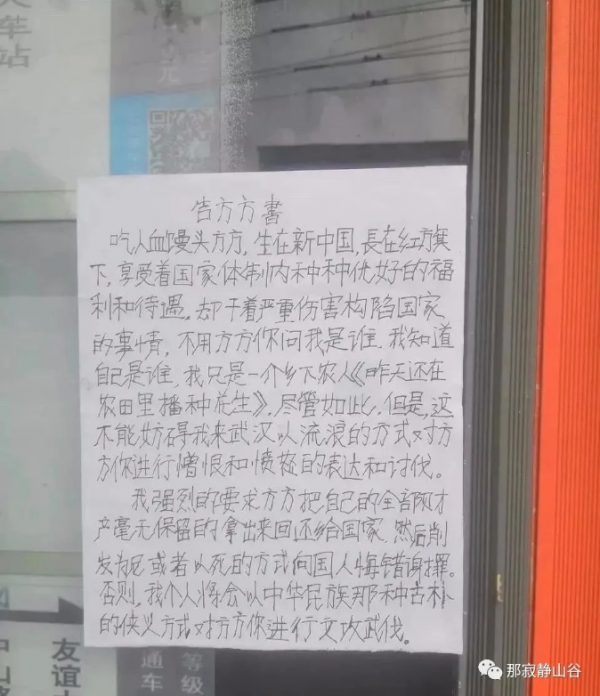 告方方書
吃人血馒头方方，生在新中国，長在红旗
下，享受着国家体制内种种优好的福
利和待遇，却干着严重伤害构陷国家
的事情，不用方方你问我是谁，我知道
自己是谁，我只是一个乡下农人《昨天还在
农田里播种花生》，尽管如此，但是，这
不能妨碍我来武汉以流浪的方式对方
方你进行憎恨和愤怒的表达和讨伐。
我强烈的要求方方把自己的全部财
产毫无保留的拿出来回还给国家，然后削
发为尼或者以死的方式向国人悔错谢罪。
否则，我个人将会以中华民族那种古朴
的侠义方式对方方你进行文攻武伐。
友谊
通车
等级
站
元
那寂静山谷